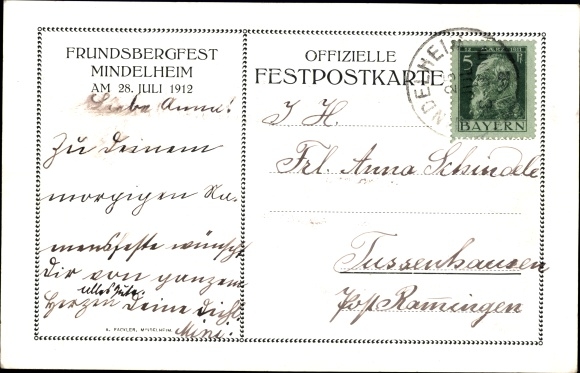 FRUNDSBERGFEST
MINDELHEIM
AM 28. JULI 1912
Liebe Anna!
Zu Deinem
morgigen Na-
mensfeste wünscht
Dir von ganzem
alles Gute.
Herzen Deine Dichl.
Mini.
A. FACKLER, MINDELHEIM.
OFFIZIELLE
FESTPOSTKARTE
MINDELHEIM
5
BAYERN
I H.
Frl. Anna Schindele
Tussenhausen
Post Ramingen